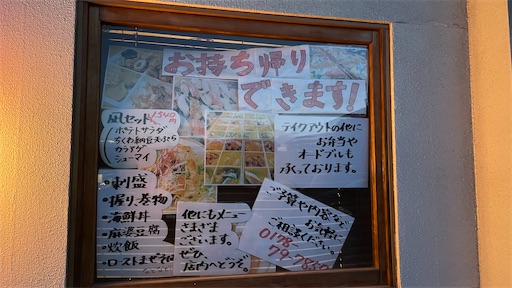 お持ち帰り
できます!
凪セット 1,540円
ポテトサラダ
ちくわ納豆天ぷら
カラアゲ
シューマイ
テイクアウトの他に
お弁当や
オードブルも
承っております。
・刺盛
・握り、巻物
・海鮮丼
・麻婆豆腐
・炊飯
・ローストまぜそば
他にもメニュー
さまざま
ございます。
ぜひ、
店内へどうぞ。
ご予算や内容など
お気軽に
ご相談ください。
0178